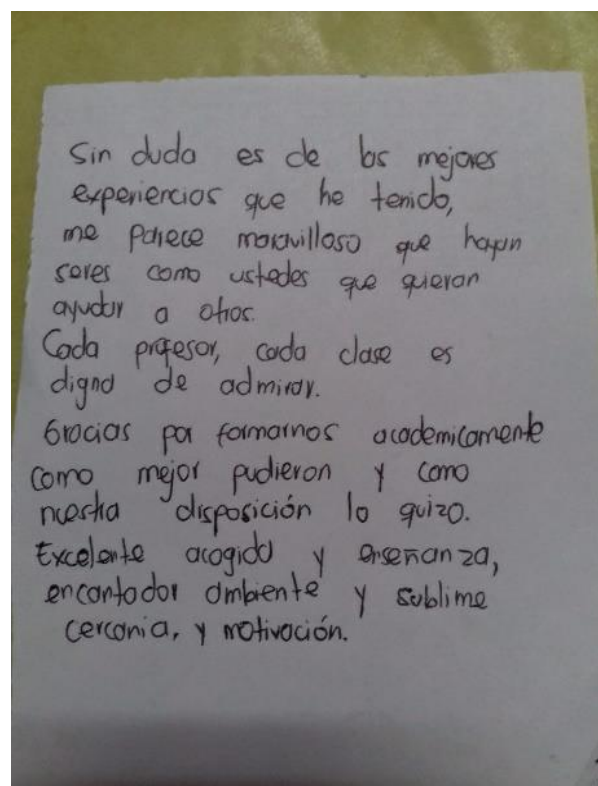 Sin duda es de las mejores
experiencias que he tenido,
me parece maravilloso que hayan
seres como ustedes que quieran
ayudar a otros.
Cada profesor, cada clase es
digna de admirar.
Gracias por formarnos academicamente
como mejor pudieron y como
nuestra disposición lo quizo.
Excelente acogida y enseñanza,
encantador ambiente y sublime
cercania, y motivación.